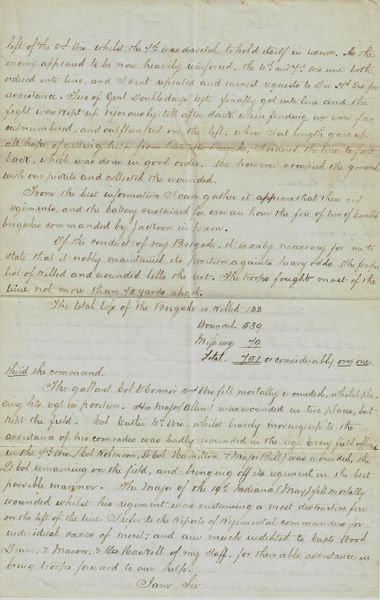 left of the 2nd Wis. whilst the 7th was directed to hold itself in reserve. As the
enemy appeared to be now heavily reinforced, the 6th and 7th Wis were both
ordered into line, and I sent repeated and earnest requests to Div Hd Qrs for
assistance. Two of Genl Doubledays regts. finally got into line and the
fight was kept up vigorously till after dark when finding we were far
outnumbered, and outflanked on the left, where I at length gave up
all hope of getting help from Brigade, I ordered the line to fall
back, which was done in good order. We however occupied the ground
with our pickets and collected the wounded.
From the best information I can gather it appears that these
regiments, and the battery sustained for over an hour the fire of two of Ewells
brigades commanded by Jackson in person.
Of the conduct of my Brigade, it is only necessary for me to
state that it nobly maintained its position against heavy odds. The fearful
list of killed and wounded tells the rest. The troops fought most of the
time not more than 70 yards apart.
The total loss of the Brigade is Killed 133
Wounded 539
Missing 79
Total. 751 or considerably over one
third the command.
The gallant Col O'Connor 2nd Wis fell mortally wounded, whilst pla-
cing his regt in position. His Major (Allen) was wounded in two places, but
kept the field. Col Cutler 6th Wis. whilst bravely moving up to the
assistance of his comrades was badly wounded in the leg. Every field officer
in the 7th Wis. (Col Robinson, Lt Col Hamilton, & Major Bill) was wounded, the
Lt Col remaining on the field, and bringing off his regiment in the best
possible manner. The Major of the 19th Indiana (May) fell mortally
wounded whilst his regiment was sustaining a most destructive fire
on the left of the line. I refer to the Reports of Regimental commanders for
individual cases of merit, and am much indebted to Capts. Wood
& Mason, & Lieut Haskell of my Staff, for their able assistance in
bringing troops forward to our help.
I am Sir